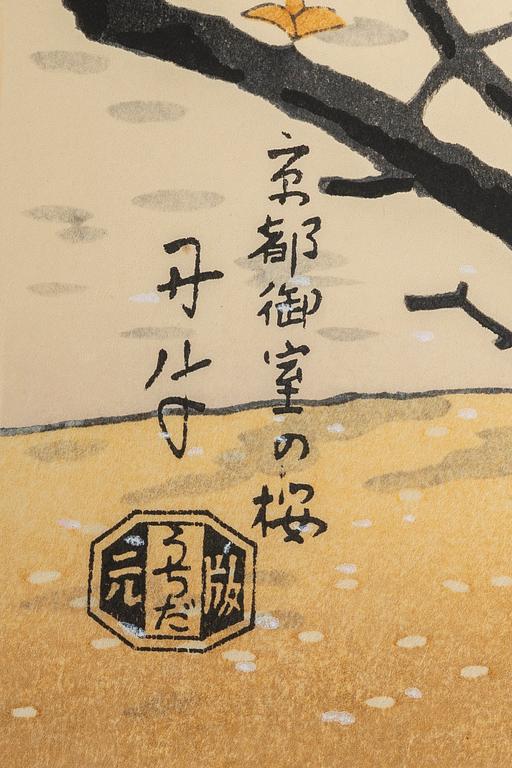 京都御室の桜
丹
版
うちだ
元